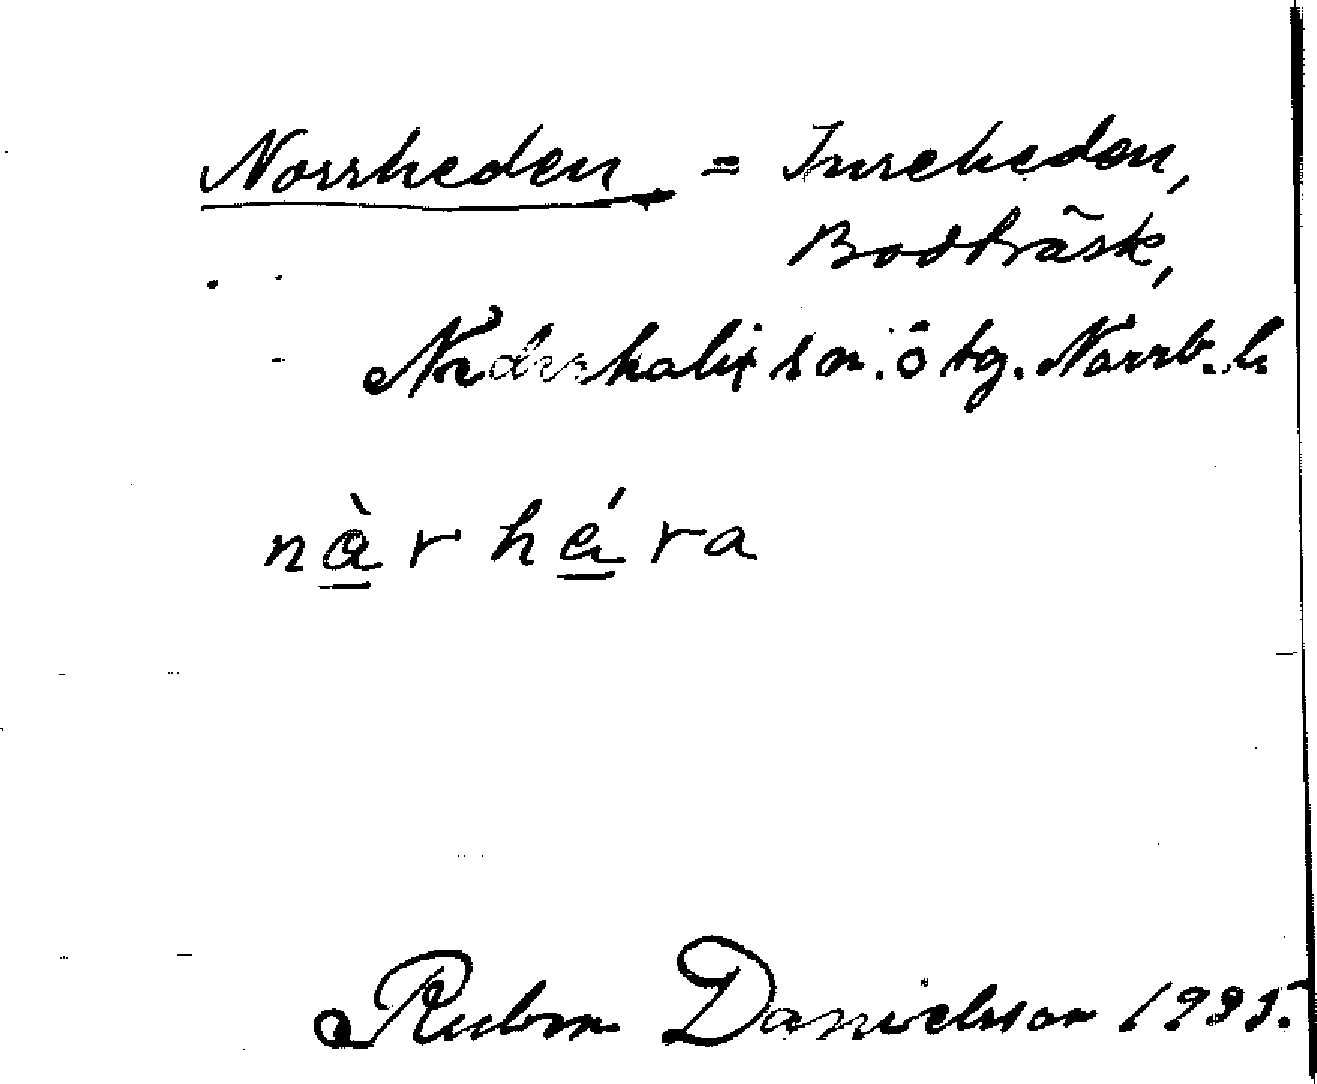 Norrheden = Inreheden,
Bodträsk,
Nederkalix sn. ö tg. Norrb. l.
nàrhéra
Rubin Danielsson 1935.